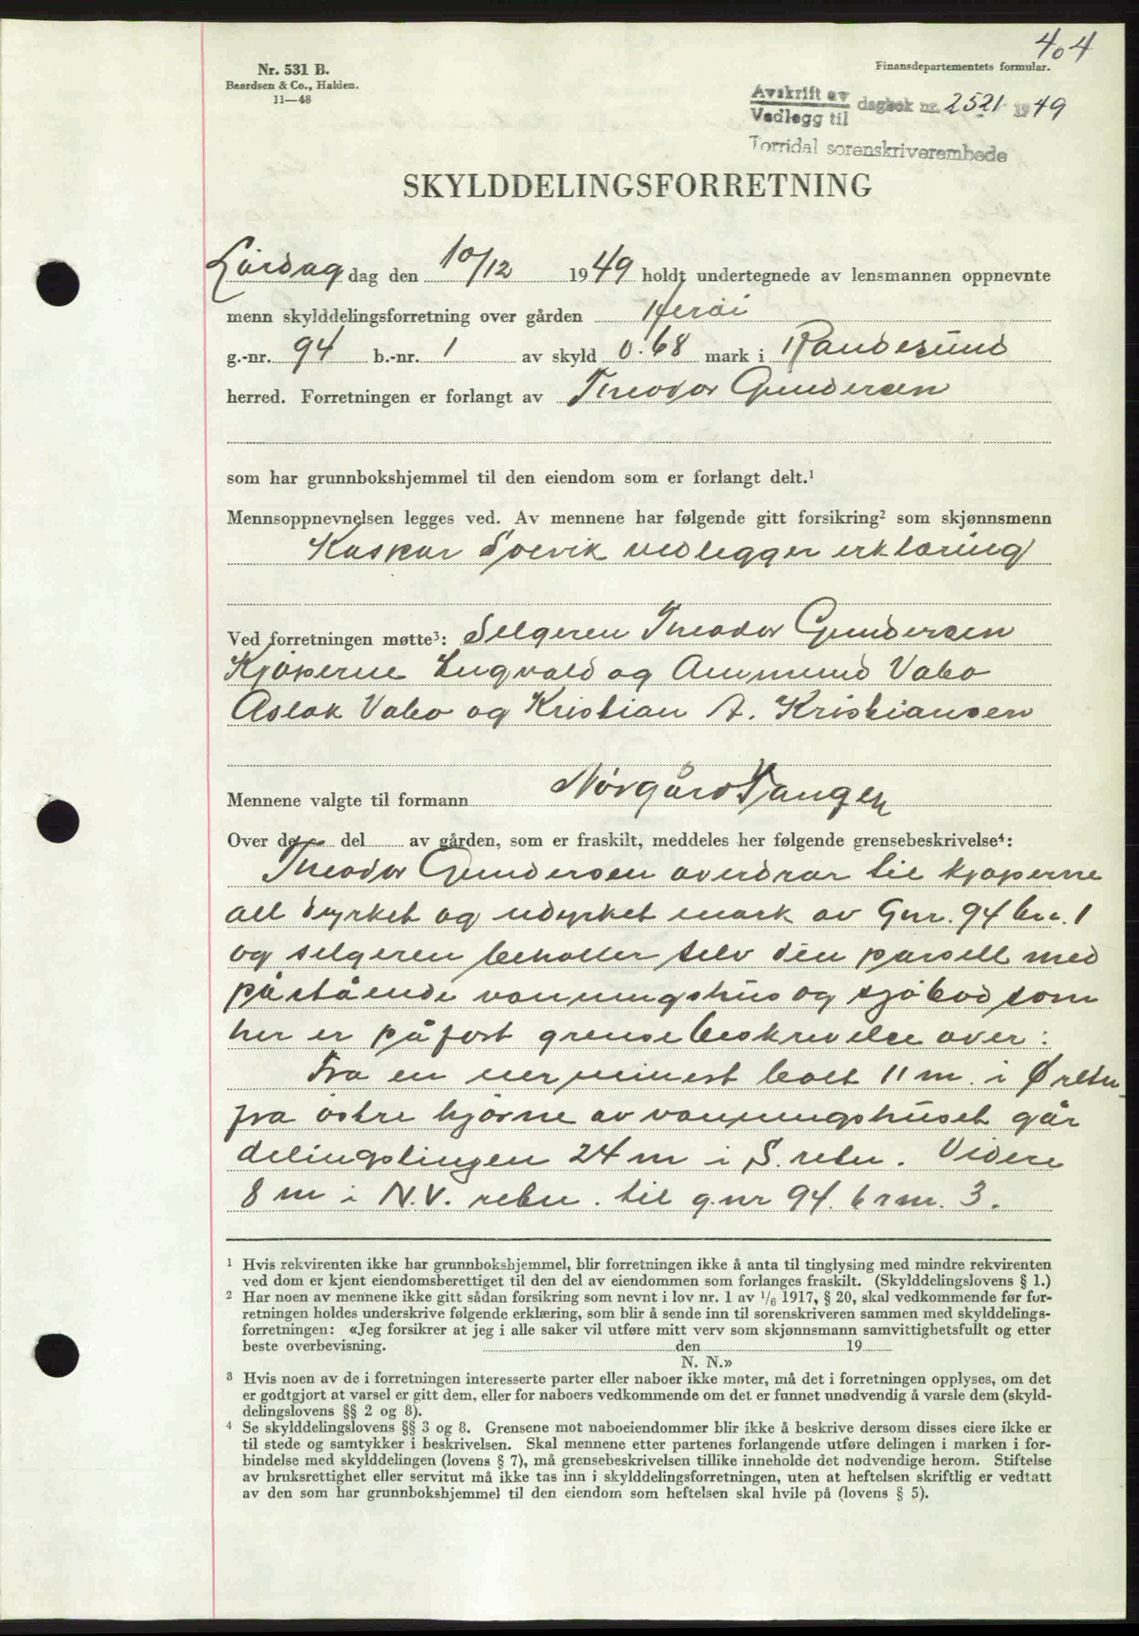 404
Nr. 531 B.
Baardsen & Co., Halden.
11—48
Finansdepartementets formular.
Avskrift av
Vedlegg til
dagbok nr. 2521 1949
Torridal sorenskriverembede
SKYLDDELINGSFORRETNING
Lördag dag den 10/12 1949 holdt undertegnede av lensmannen oppnevnte
menn skylddelingsforretning over gården Heröi
g.-nr. 94 b.-nr. 1 av skyld 0.68 mark i Randesund
herred. Forretningen er forlangt av Theodor Gundersen
som har grunnbokshjemmel til den eiendom som er forlangt delt.¹
Mennsoppnevnelsen legges ved. Av mennene har følgende gitt forsikring² som skjønnsmenn
Kaspar vedlegger erklæring
Ved forretningen møtte³: Selgeren Theodor Gundersen
Kjöperne Ingvald og Ammund Vabo
Aslak Vabo og Kristian A. Kristiansen
Mennene valgte til formann Nørgård Tangen
Over de del av gården, som er fraskilt, meddeles her følgende grensebeskrivelse⁴:
Theodor Gundersen overdrar til kjöperne
all dyrket og udyrket mark av Gnr. 94 bnr. 1
og selgeren beholler selv den parsell med
påstående vonningshus og sjöbod som
her er påfört grensebeskrivelse over:
Fra en nerminest bolt 11 m. i Ø retn
fra östre hjörne av vonningshuset går
delingslingen 24 m i S. retn. Videre
8 m i N.V. retn. til g.nr 94. brnr. 3.
¹ Hvis rekvirenten ikke har grunnbokshjemmel, blir forretningen ikke å anta til tinglysing med mindre rekvirenten
ved dom er kjent eiendomsberettiget til den del av eiendommen som forlanges fraskilt. (Skylddelingslovens § 1.)
² Har noen av mennene ikke gitt sådan forsikring som nevnt i lov nr. 1 av 1/6 1917, § 20, skal vedkommende før for-
retningen holdes underskrive følgende erklæring, som blir å sende inn til sorenskriveren sammen med skylddelings-
forretningen: «Jeg forsikrer at jeg i alle saker vil utføre mitt verv som skjønnsmann samvittighetsfullt og etter
beste overbevisning. den 19
N. N.»
³ Hvis noen av de i forretningen interesserte parter eller naboer ikke møter, må det i forretningen opplyses, om det
er godtgjort at varsel er gitt dem, eller for naboers vedkommende om det er funnet unødvendig å varsle dem (skyld-
delingslovens §§ 2 og 8).
⁴ Se skylddelingslovens §§ 3 og 8. Grensene mot naboeiendommer blir ikke å beskrive dersom disses eiere ikke er
til stede og samtykker i beskrivelsen. Skal mennene etter partenes forlangende utføre delingen i marken i for-
bindelse med skylddelingen (lovens § 7), må grensebeskrivelsen tillike inneholde det nødvendige herom. Stiftelse
av bruksrettighet eller servitut må ikke tas inn i skylddelingsforretningen, uten at heftelsen skriftlig er vedtatt
av den som har grunnbokshjemmel til den eiendom som heftelsen skal hvile på (lovens § 5).